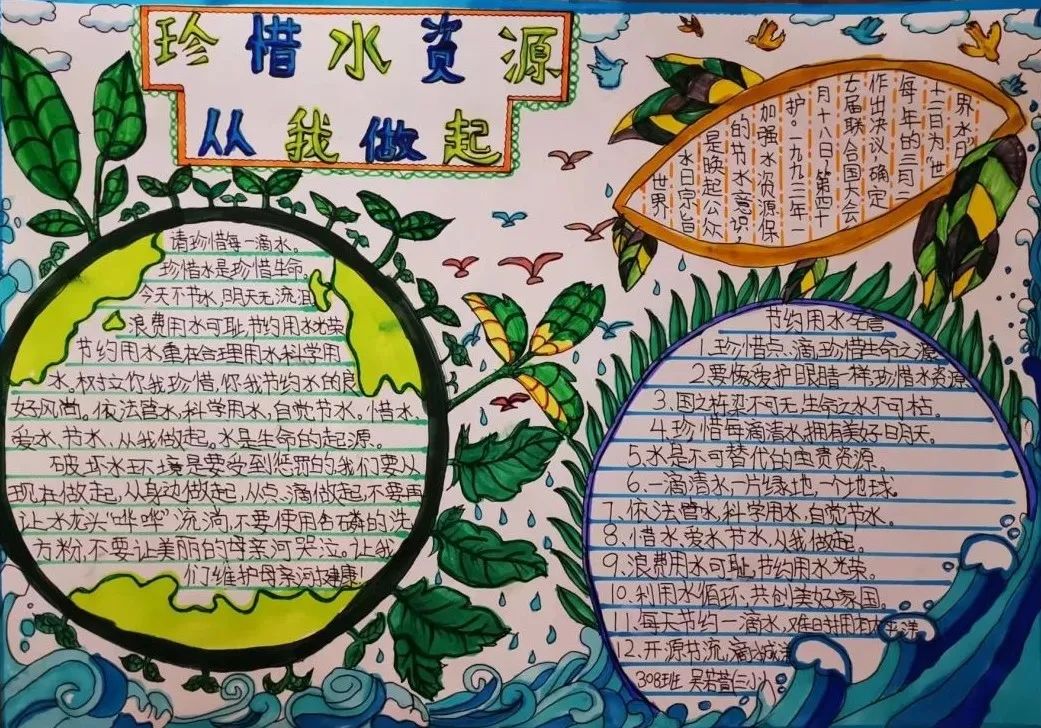 珍惜水资源
从我做起
请珍惜每一滴水。
珍惜水是珍惜生命。
今天不节水,明天无流泪
浪费用水可耻,节约用水光荣
节约用水重在合理用水科学用
水,树立你我珍惜,你我节约水的良
好风尚。依法管水,科学用水,自觉节水。惜水、
爱水、节水、从我做起。水是生命的起源。
破坏水环境是要受到惩罚的,我们要从
现在做起,从身边做起,从点、滴做起,不要再
让水龙头“哗哗”流淌,不要使用含磷的洗
衣粉,不要让美丽的母亲河哭泣。让我
们维护母亲河健康!
“世界
水日宗旨
是唤起公众
的节水意识,
加强水资源保
护。一九九三年一
月十八日,第四十
七届联合国大会
作出决议,确定
每年的三月二
十二日为“世
界水日
节约用水名言
1.珍惜点、滴,珍惜生命之源
2.要像爱护眼睛一样珍惜水资源
3.国之栋梁不可无,生命之水不可枯。
4.珍惜每滴清水,拥有美好明天。
5.水是不可替代的宝贵资源。
6.一滴清水,一片绿地,一个地球。
7.依法管水,科学用水,自觉节水。
8.惜水、爱水、节水,从我做起。
9.浪费用水可耻,节约用水光荣。
10.利用水循环,共创美好家园。
11.每天节约一滴水,难时拥有太平洋
12.开源节流,滴水成洋
308班 吴若萱(三小)